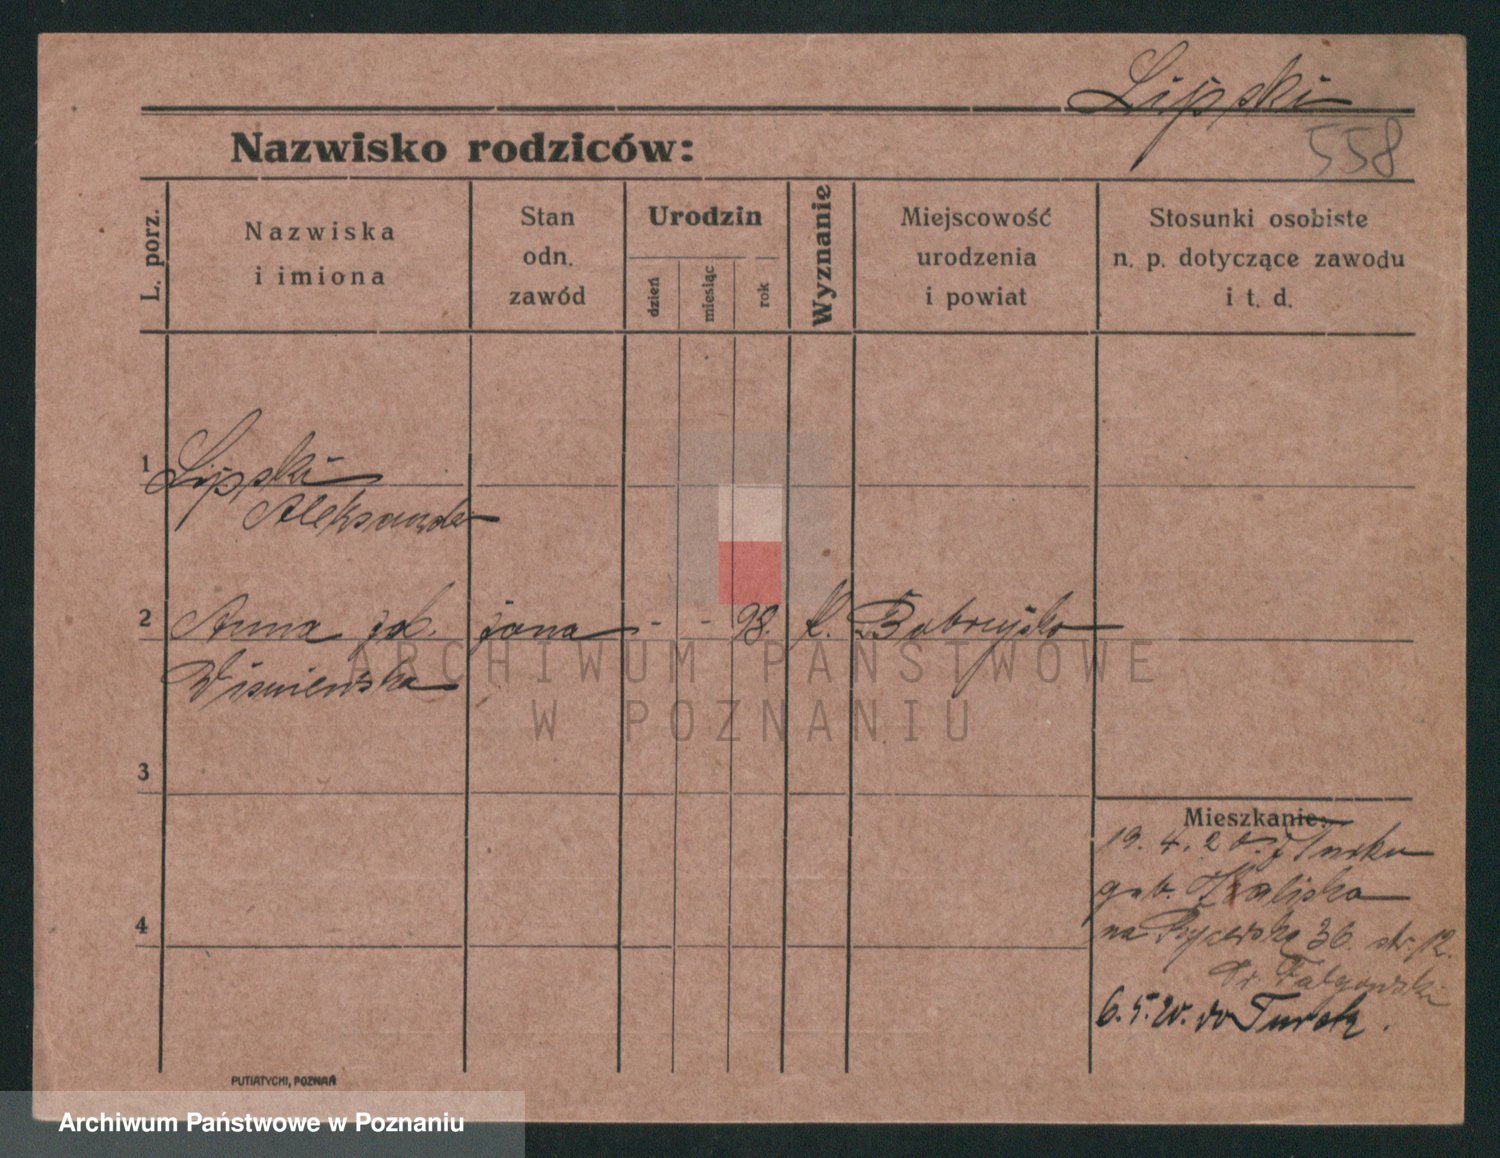 Lipski
558
Nazwisko rodziców:
L. porz.
Nazwiska
i imiona
Stan
odn.
zawód
Urodzin
dzień
miesiąc
rok
Wyznanie
Miejscowość
urodzenia
i powiat
Stosunki osobiste
n. p. dotyczące zawodu
i t. d.
1
Lipski
Aleksander
2
Anna żona - - 98. k.
Wiśniewska
3
4
Mieszkanie:
19. 4. 20. z Turku
gub. Kaliska
na Rycerską 36. str. 12.
6. 5. 20. do Turek.
PUTIATYCKI, POZNAŃ
ARCHIWUM PAŃSTWOWE
W POZNANIU
Archiwum Państwowe w Poznaniu